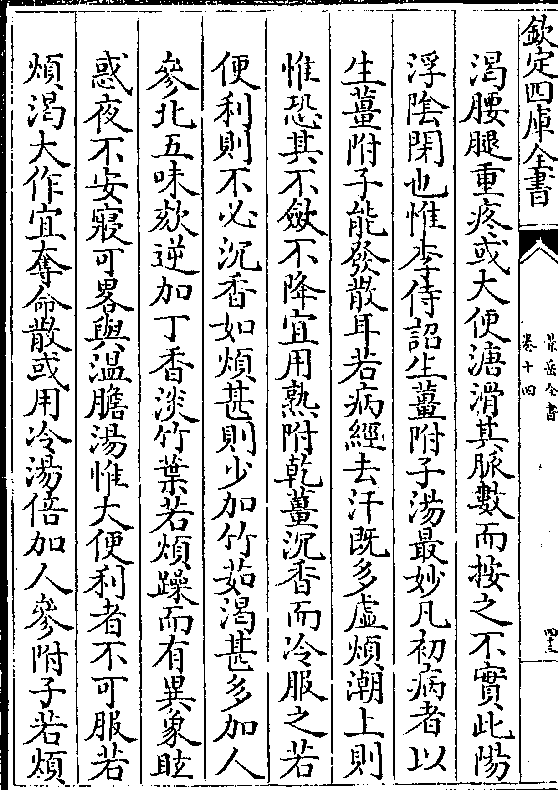 欽定四庫全書
景岳全書
卷十四
渴腰腿重疼或大便溏滑其脈數而按之不實此陽
浮陰閉也惟李侍詔生薑附子湯最妙凡初病者以
生薑附子能發散耳若病經去汗既多虛煩潮上則
惟恐其不斂不降宜用熟附乾薑沉香而冷服之若
便利則不必沉香如煩甚則少加竹茹渴甚多加人
參北五味欬逆加丁香淡竹葉若煩躁而有異象眩
惑夜不安寢可畧與温膽湯惟大便利者不可服若
煩渴大作宜奪命散或用冷湯倍加人參附子若煩